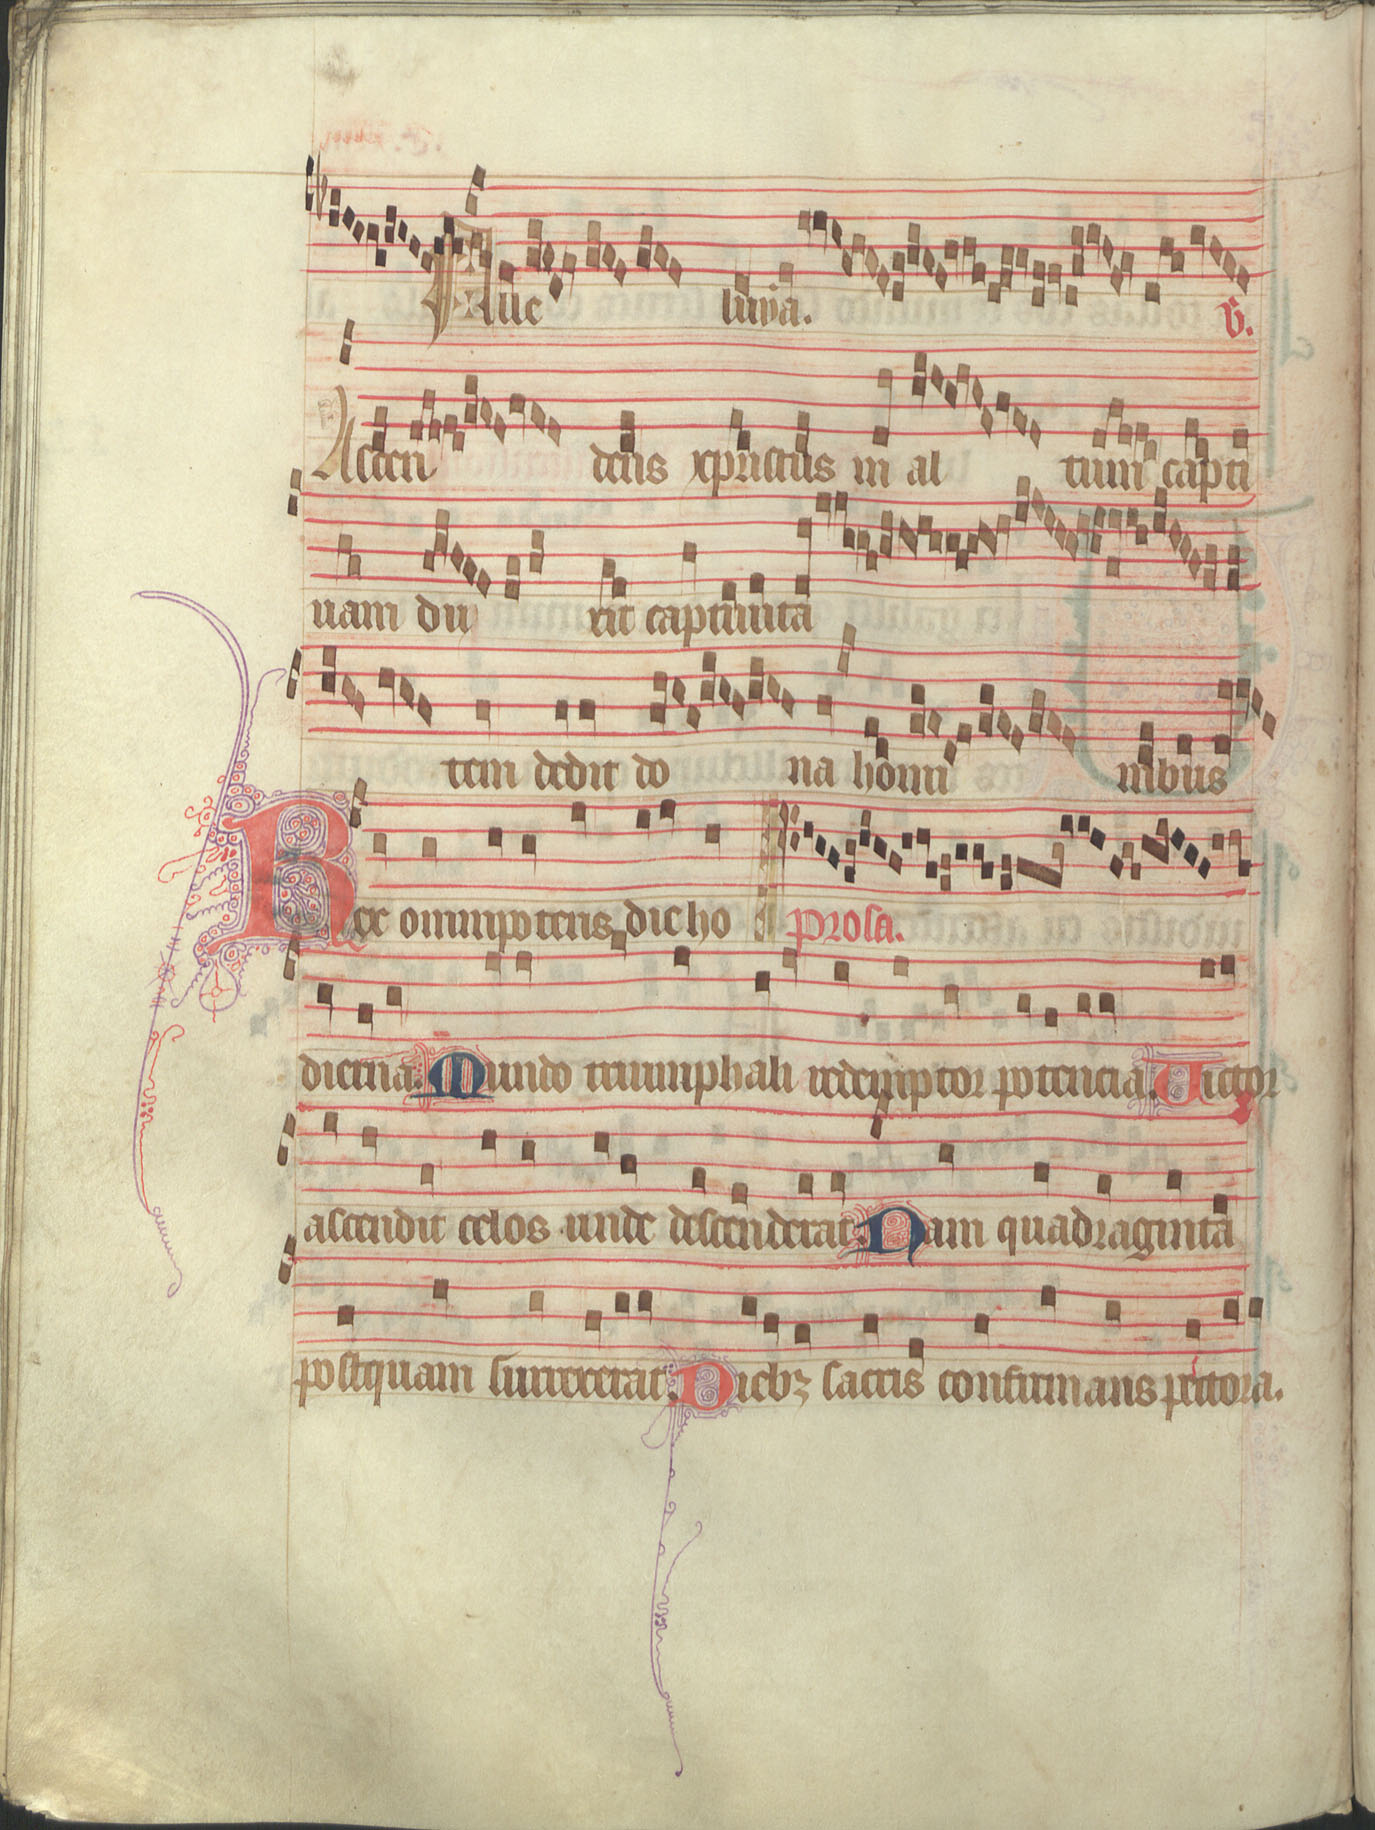 Alle luya. V.
Ascen dens xpristus in al tum capti
uam du xit captiuita
tem dedit do na homi nibus
Rex omnipotens dicho prosa.
dierna. Mundo triumphali redemptor potencia. Victor
ascendit celos unde descenderat. Nam quadraginta
postquam surrexerat. Diebꝫ sacris confirmans pectora.